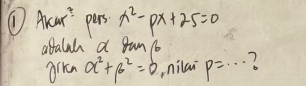 ① Akar² pers. x² - px + 25 = 0
adalah α dan β
jika α² + β² = 0, nilai p = ...?